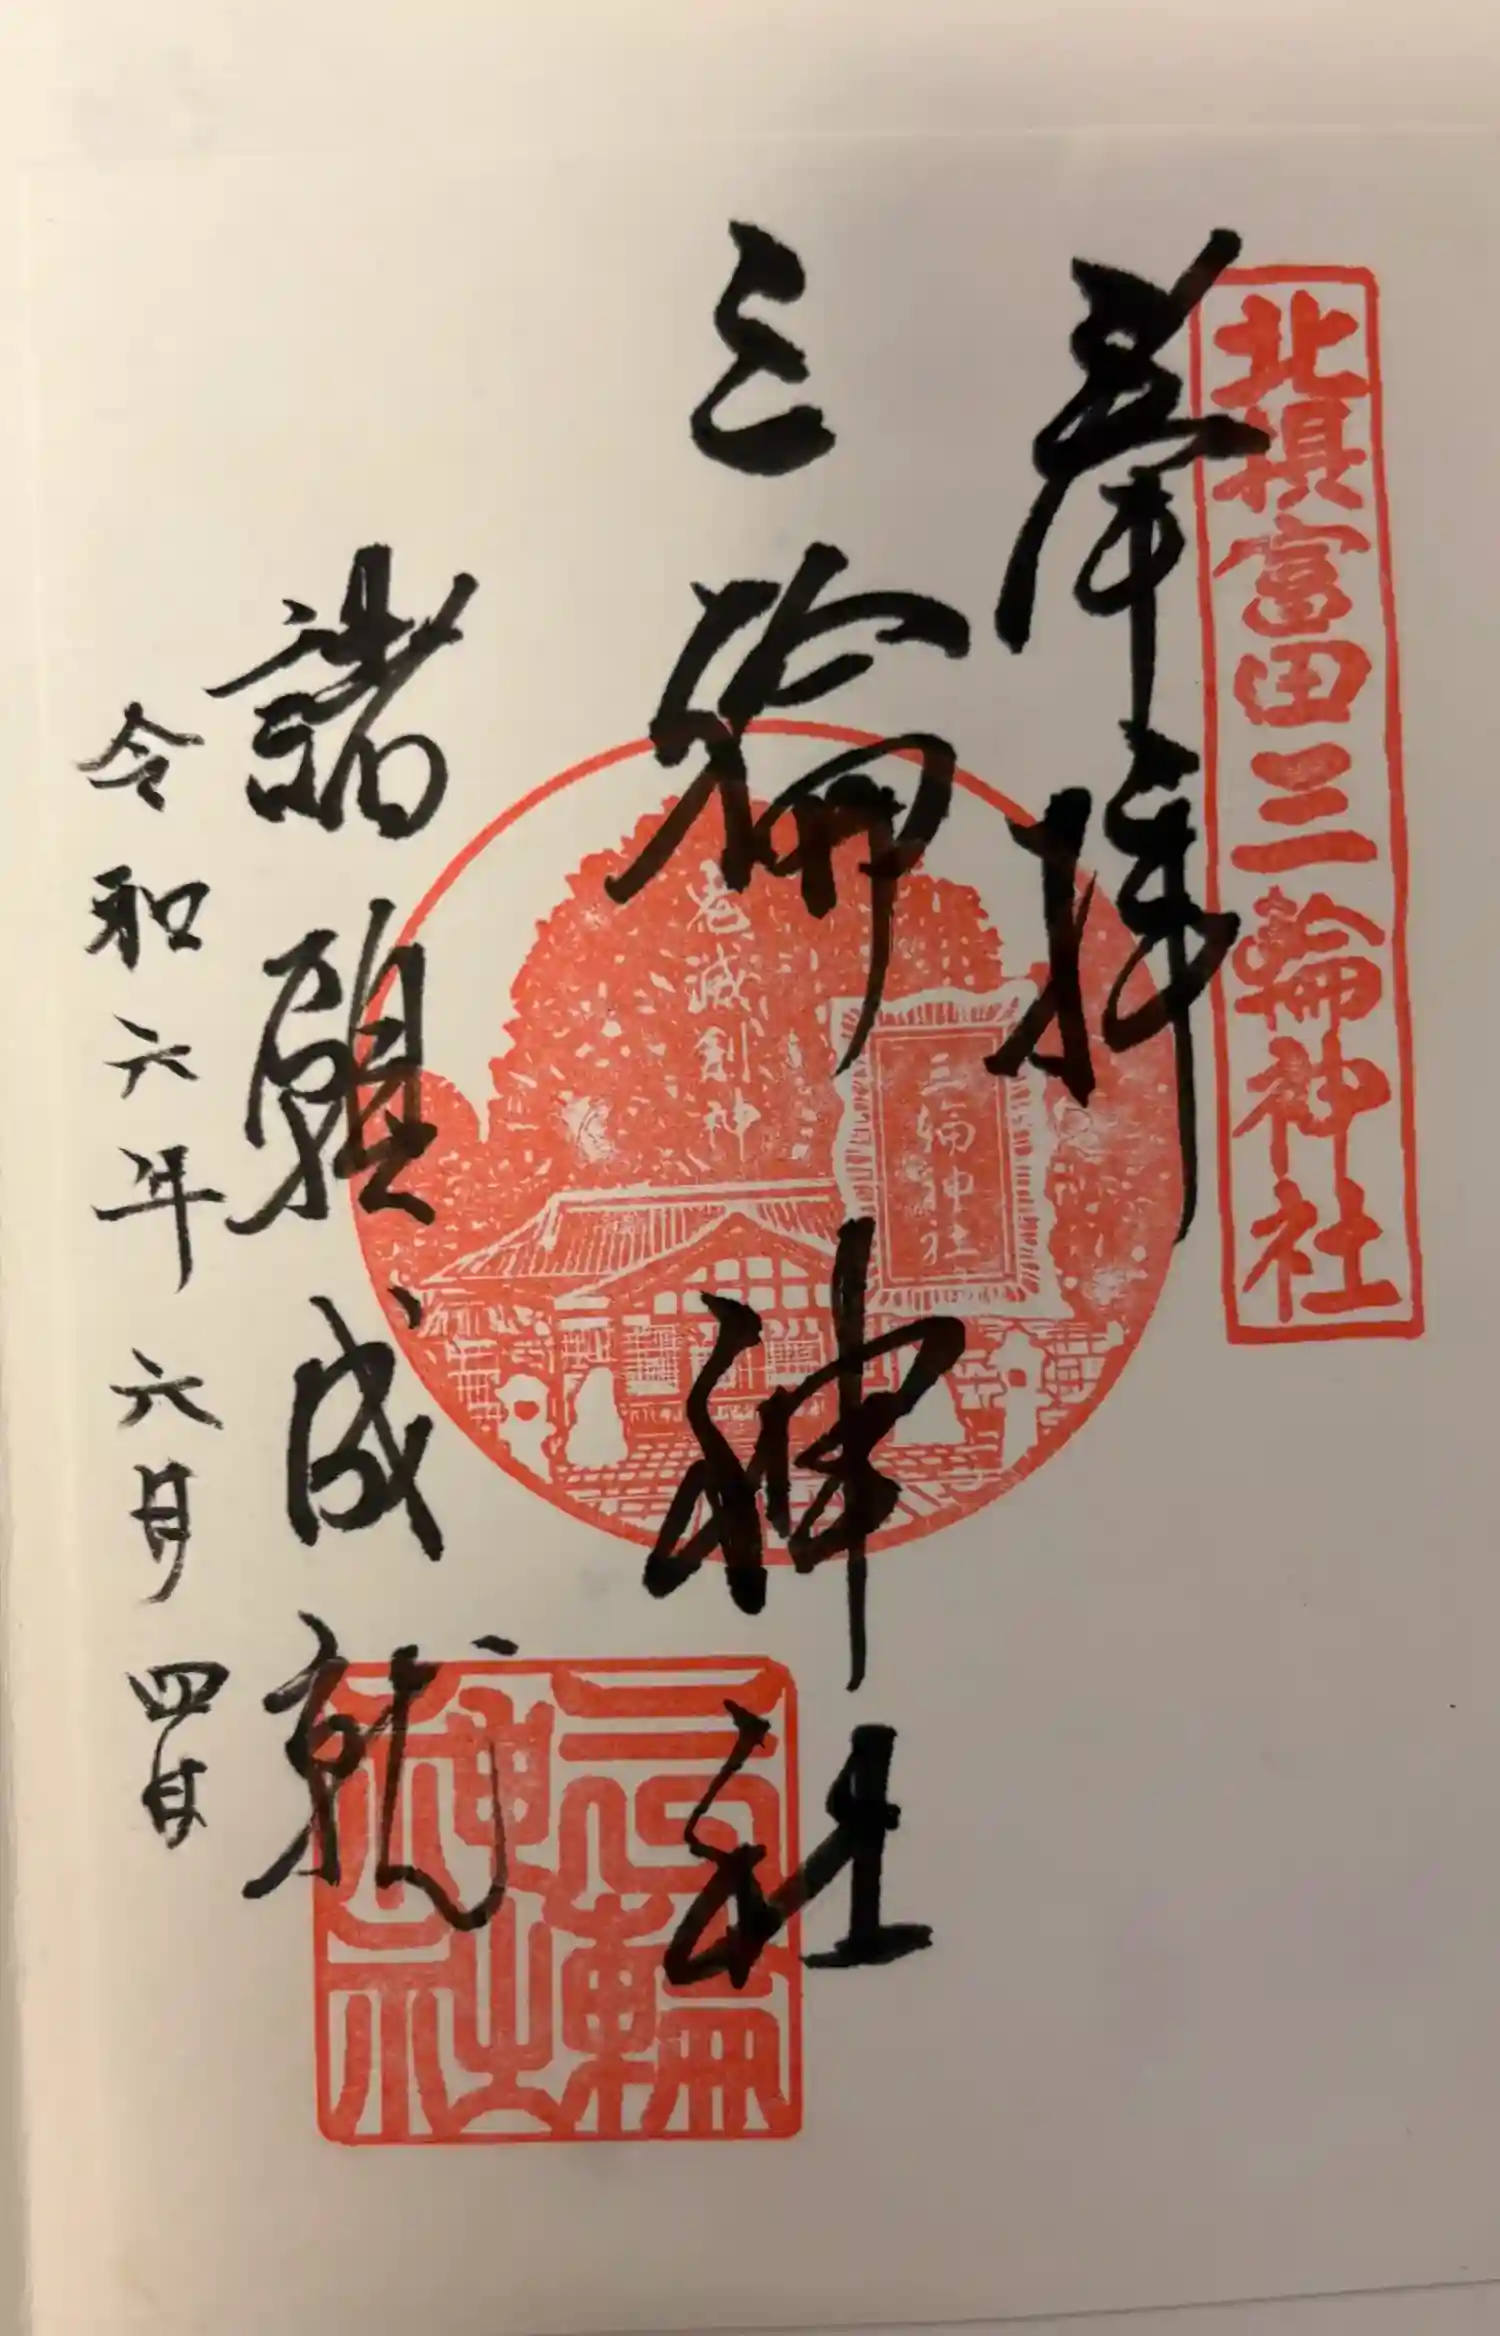 北摂富田三輪神社
奉拝
三輪神社
三輪神社
諸願成就
三輪神社
令和六年六月四日